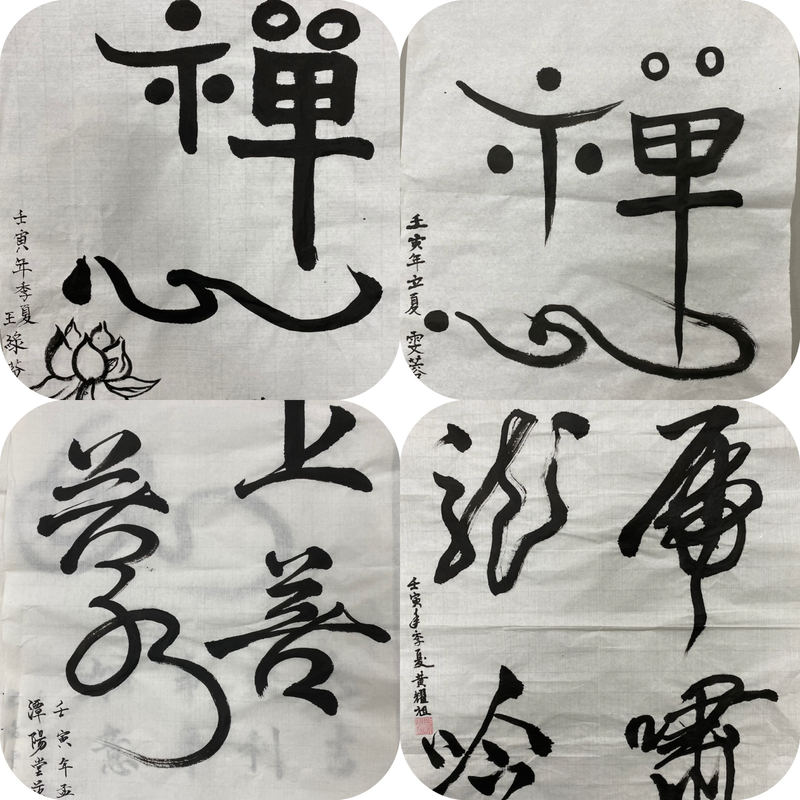 禪
心
壬寅年季夏
王綠
禪
心
壬寅年立夏 雯蓉
上善
若水
壬寅年孟
潭陽堂
虎嘯
龍吟
壬寅年季夏黃耀祖